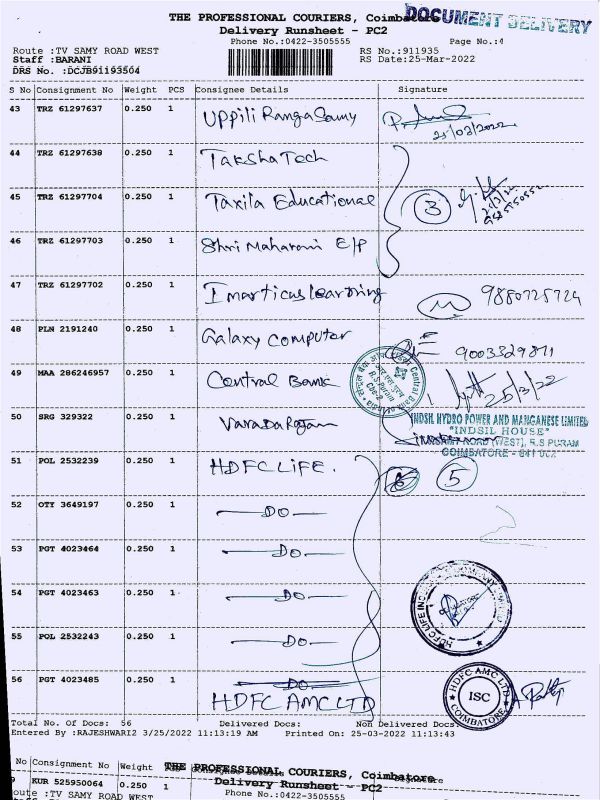 THE PROFESSIONAL COURIERS, Coimbatore
DOCUMENT DELIVERY
Delivery Runsheet - PC2
Phone No.:0422-3505555 Page No.:4
Route :TV SAMY ROAD WEST RS No.:911935
Staff :BARANI RS Date:25-Mar-2022
DRS No. :DCJB91193504
S No Consignment No Weight PCS Consignee Details Signature
43 TRZ 61297637 0.250 1 Uppili Ranga Samy
25/03/2022
44 TRZ 61297638 0.250 1 Taksha Tech
45 TRZ 61297704 0.250 1 Taxila Educational 3
46 TRZ 61297703 0.250 1 Shri Maharani E/P
47 TRZ 61297702 0.250 1 Imarticus learning 9880725724
48 PLN 2191240 0.250 1 Galaxy computer 9003329871
49 MAA 286246957 0.250 1 Central Bank 25/3/22
Central Bank
R.S. Puram
50 SRG 329322 0.250 1 Varada Rajan
INDSIL HYDRO POWER AND MANGANESE LIMITED
"INDSIL HOUSE"
(WEST), R.S PURAM
COIMBATORE - 641 002
51 POL 2532239 0.250 1 HDFC LIFE. 5
52 OTY 3649197 0.250 1 —DO—
53 PGT 4023464 0.250 1 —DO—
54 PGT 4023463 0.250 1 —DO—
55 POL 2532243 0.250 1 —DO—
HDFC LIFE
56 PGT 4023485 0.250 1 —DO—
HDFC AMC LTD
HDFC AMC LTD
ISC
COIMBATORE
Total No. Of Docs: 56 Delivered Docs: Non Delivered Docs:
Entered By :RAJESHWARI2 3/25/2022 11:13:19 AM Printed On: 25-03-2022 11:13:43
No Consignment No Weight PCS Consignee Details Signature
THE PROFESSIONAL COURIERS, Coimbatore
9 KUR 525950064 0.250 Delivery Runsheet - PC2
oute :TV SAMY ROAD WEST Phone No.:0422-3505555